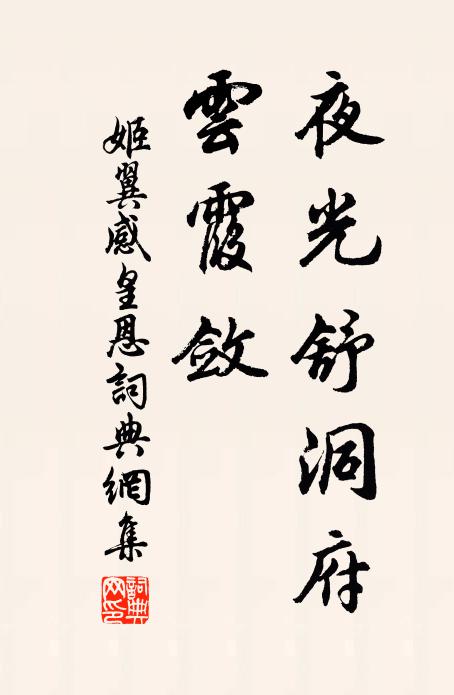 夜光舒洞府
雲霞斂
姬翼感皇恩詞典網集
詞典网印